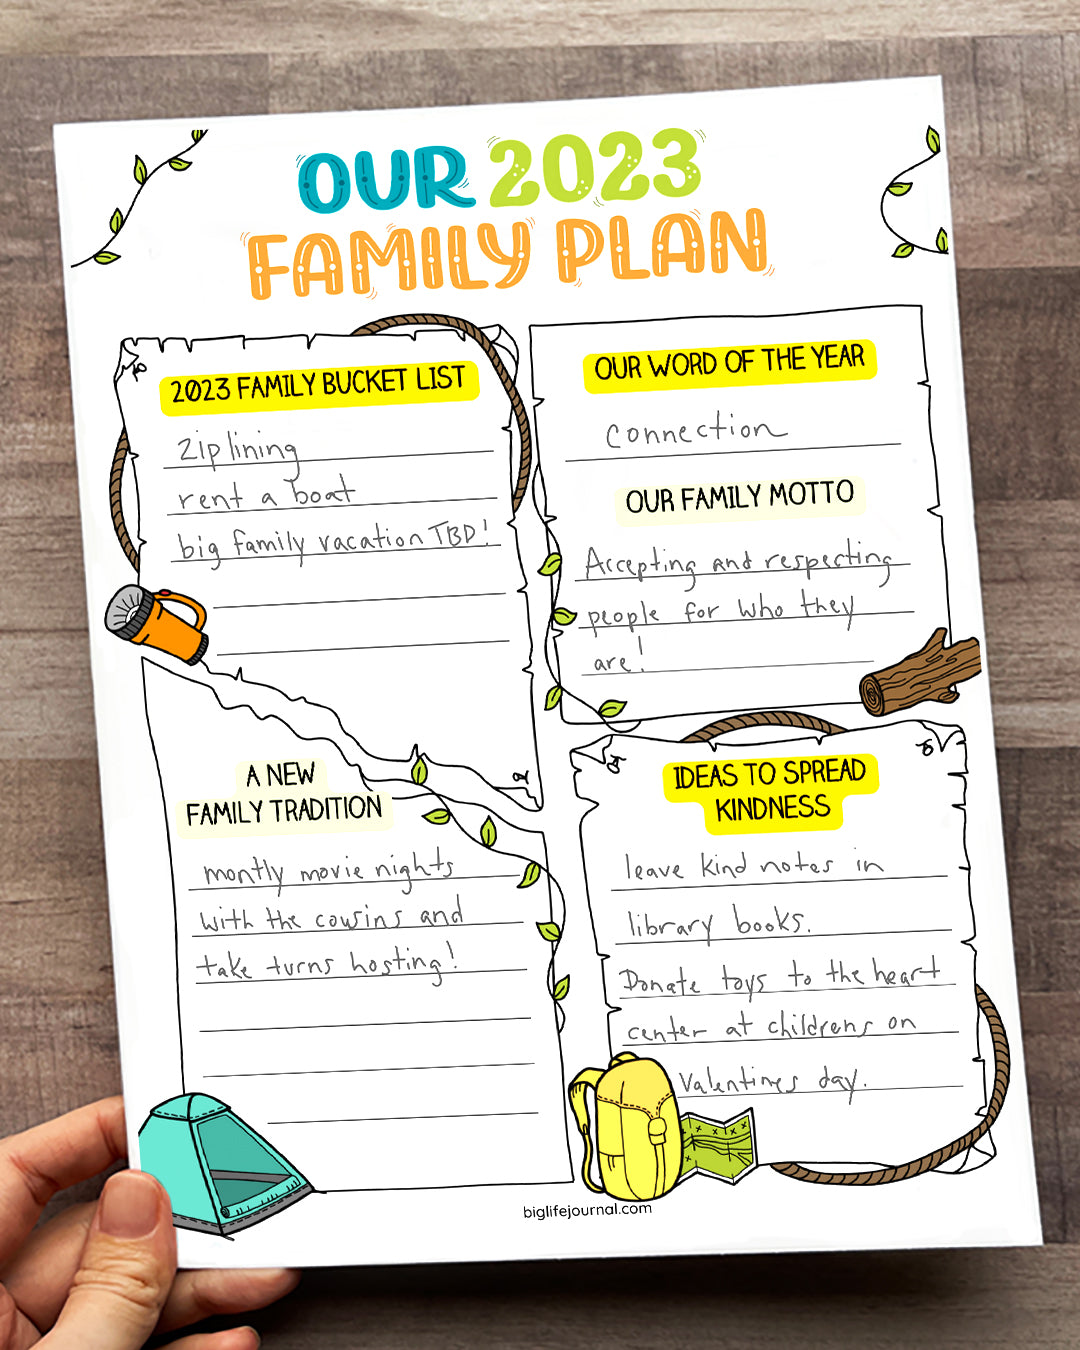 OUR 2023
FAMILY PLAN
2023 FAMILY BUCKET LIST
Zip lining
rent a boat
big family vacation TBD!
OUR WORD OF THE YEAR
Connection
OUR FAMILY MOTTO
Accepting and respecting
people for who they
are!
A NEW
FAMILY TRADITION
montly movie nights
with the cousins and
take turns hosting!
IDEAS TO SPREAD
KINDNESS
leave kind notes in
library books.
Donate toys to the heart
center at childrens on
Valentines day.
biglifejournal.com